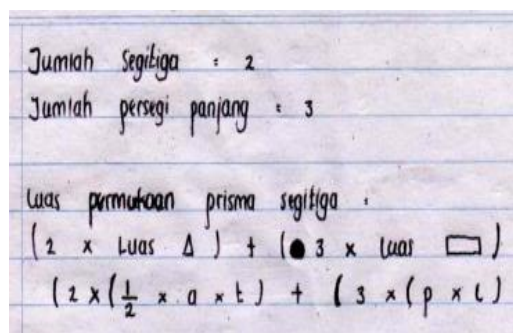 Jumlah segitiga : 2
Jumlah persegi panjang : 3
Luas permukaan prisma segitiga :
(2 x Luas Δ) + (3 x Luas ▭)
(2 x (1/2 x a x t) + (3 x (p x l)